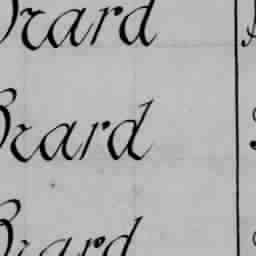 Brard
Brard
Brard